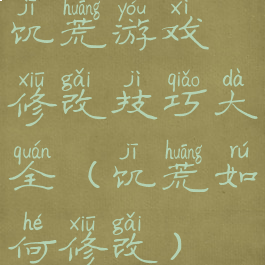 jī huāng yóu xì
饥荒游戏
xiū gǎi jì qiǎo dà
修改技巧大
quán jī huāng rú
全（饥荒如
hé xiū gǎi
何修改）